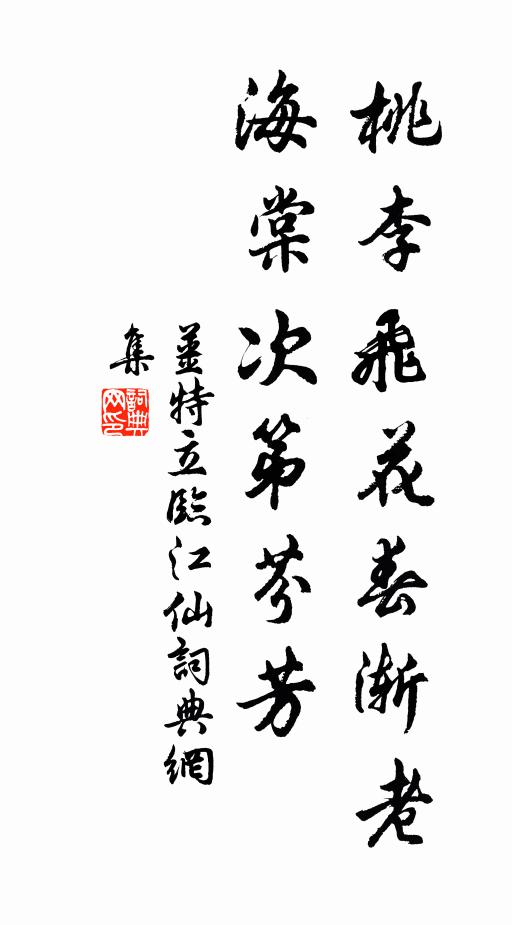 桃李飛花春漸老
海棠次第芬芳
姜特立臨江仙詞典網
集
詞典網印